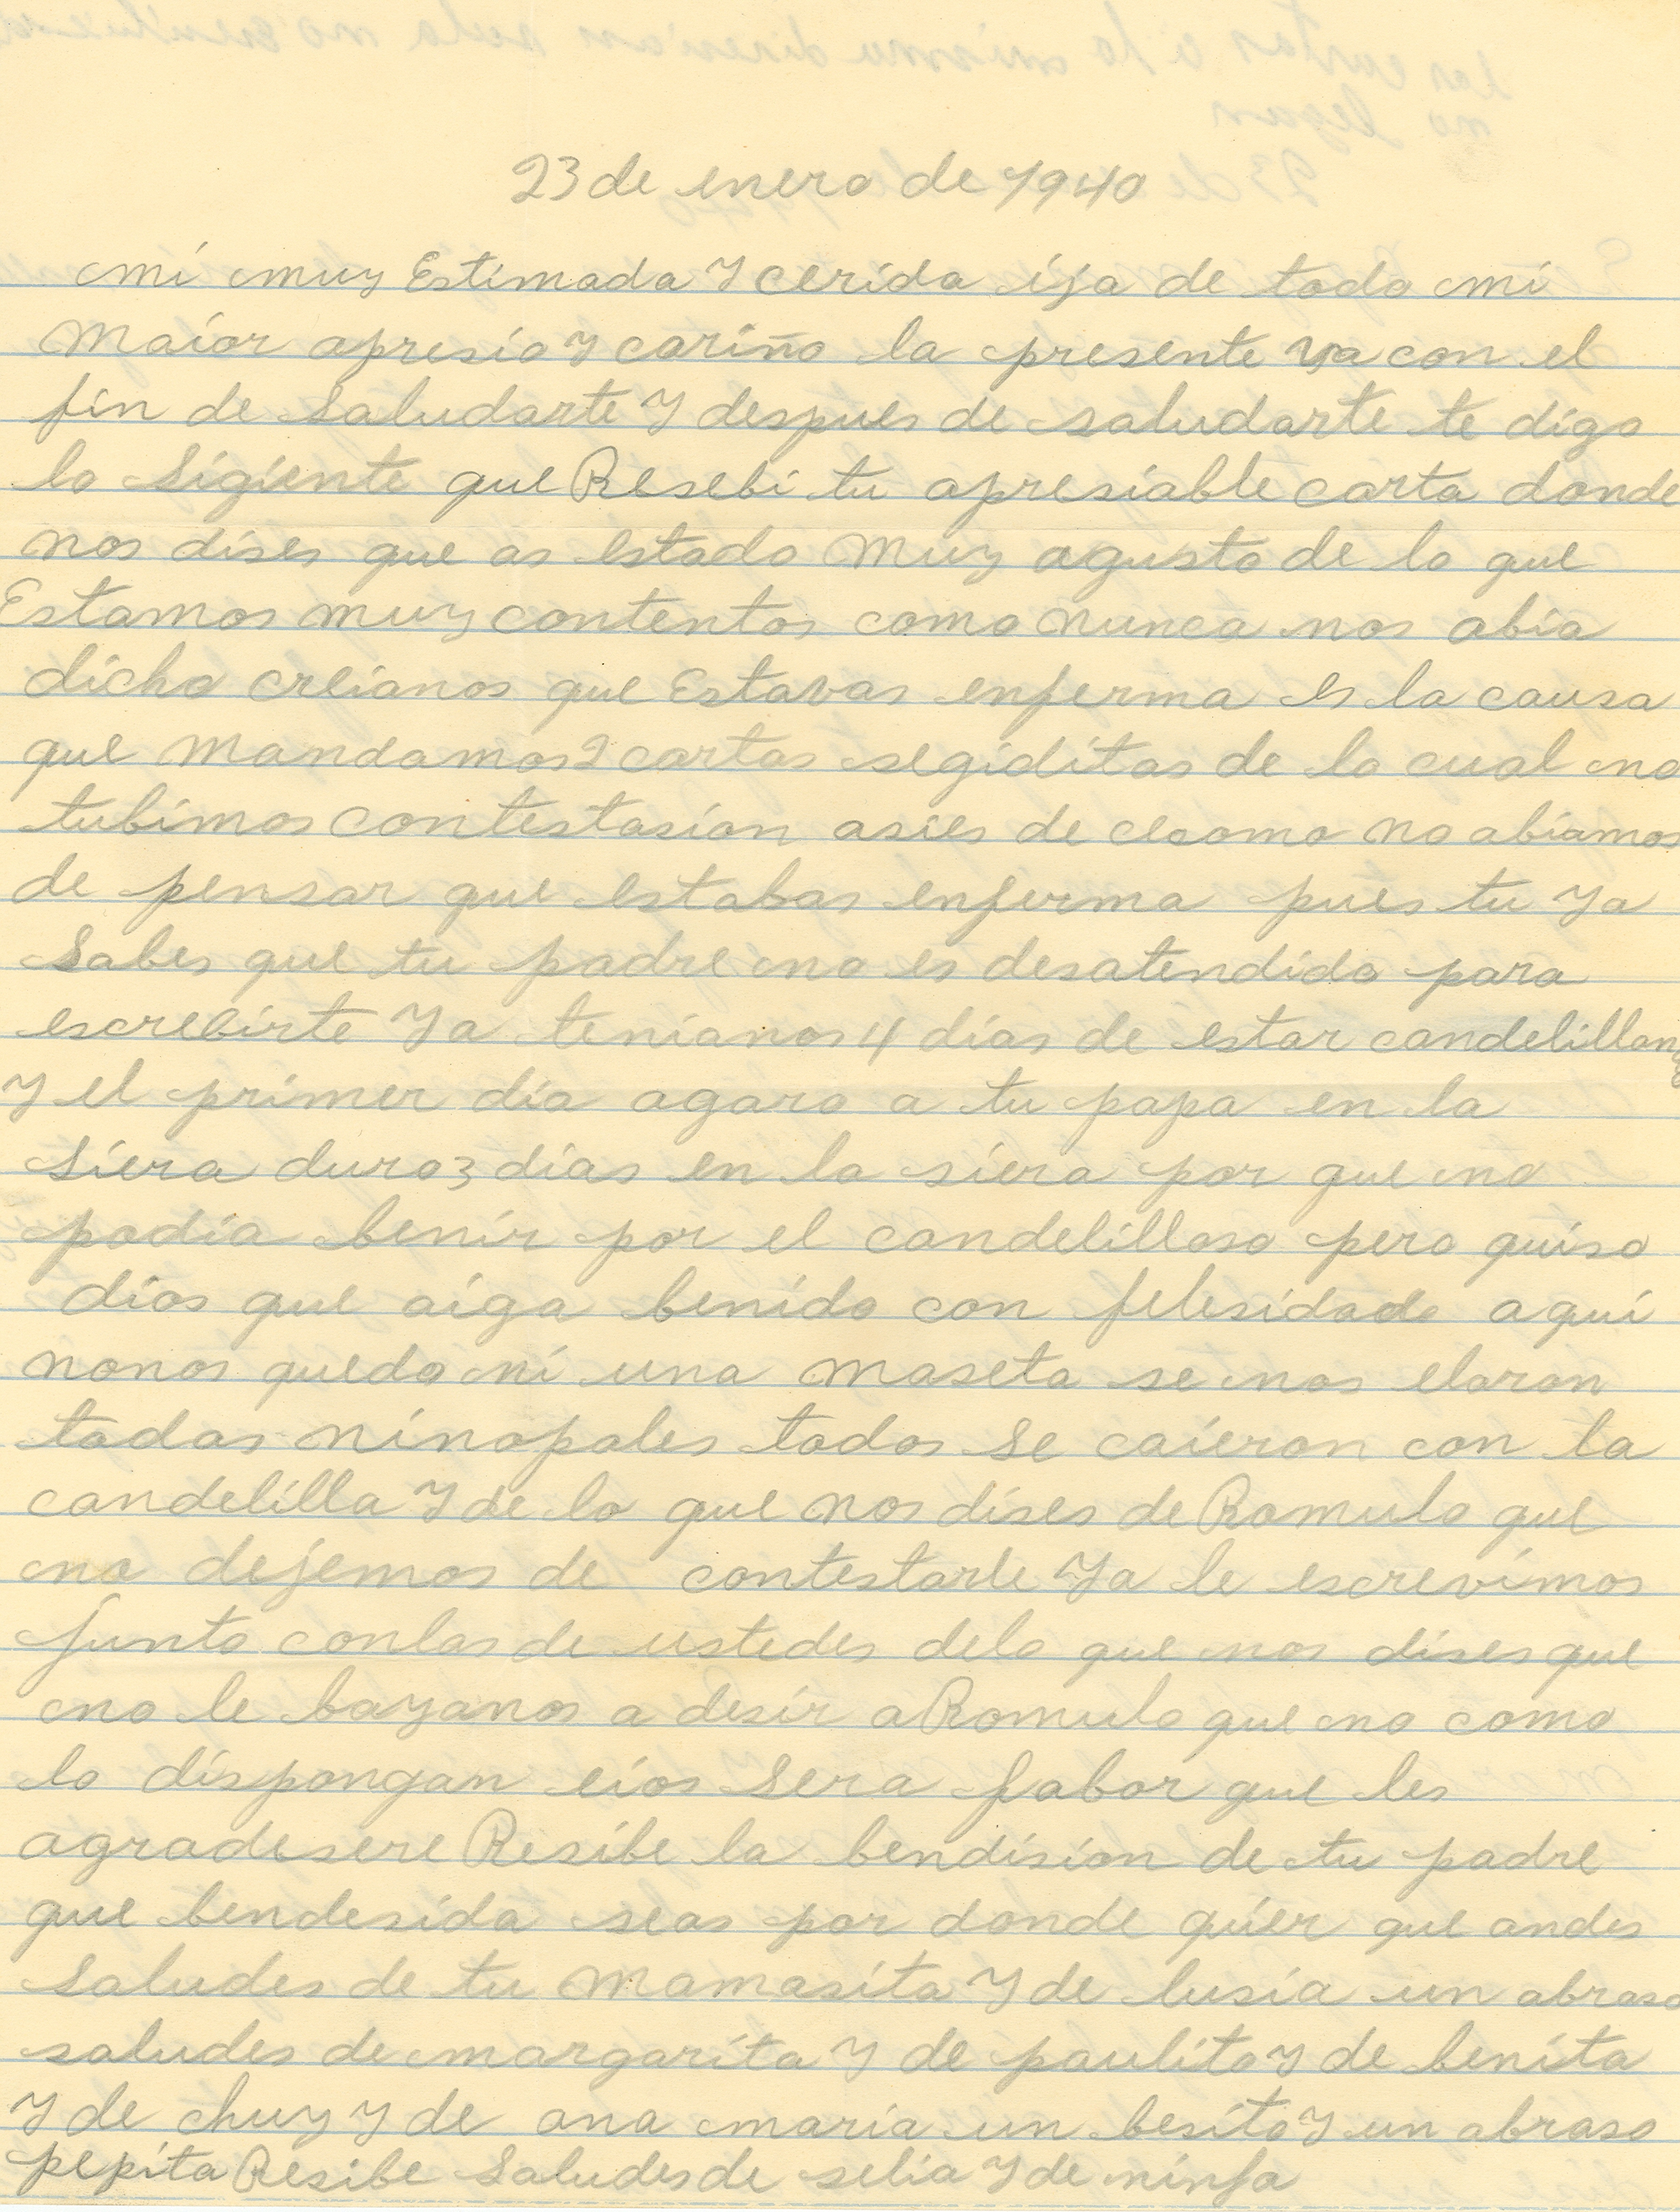 23 de enero de 1940
mi muy Estimada Y cerida ija de todo mi
Maior apresio Y cariño la presente va con el
fin de Saludarte Y despues de saludarte te digo
lo Sigiente que Resebi tu apresiable carta donde
nos dises que as estado Muy agusto de lo que
Estamos muy contentos como nunca nos abia
dicho creianos que Estavas enferma es la causa
que Mandamos 2 cartas segiditas de lo cual no
tubimos contestasion asies de como no abiamos
de pensar que estabas enferma pues tu Ya
Sabes que tu padre no es desatendido para
escrebirte Ya tenianos 4 dias de estar candelillando
Y el primer dia agaro a tu papa en la
Siera duro 3 dias en la siera por que no
podia benir por el candelilloso pero quiso
dios que aiga benido con felesidade aqui
nonos quedo ni una maseta se nos elaron
todas ninopales todos se caieron con la
candelilla Y de lo que nos dises de Romulo que
no dejemos de contestarle Ya le escrevimos
junto conlas de ustedes delo que nos dises que
no le bayanos a desir a Romulo que no como
lo dispongan eios Sera fabor que les
agradesere Resibe la bendision de tu padre
que bendesida seas por donde quier que andes
Saludes de tu Mamasita Y de lusia un abraso
saludes de margarita Y de paulito Y de benita
Y de chuy y de ana maria un besito Y un abraso
pepita Resibe Saludes de selia Y de ninfa